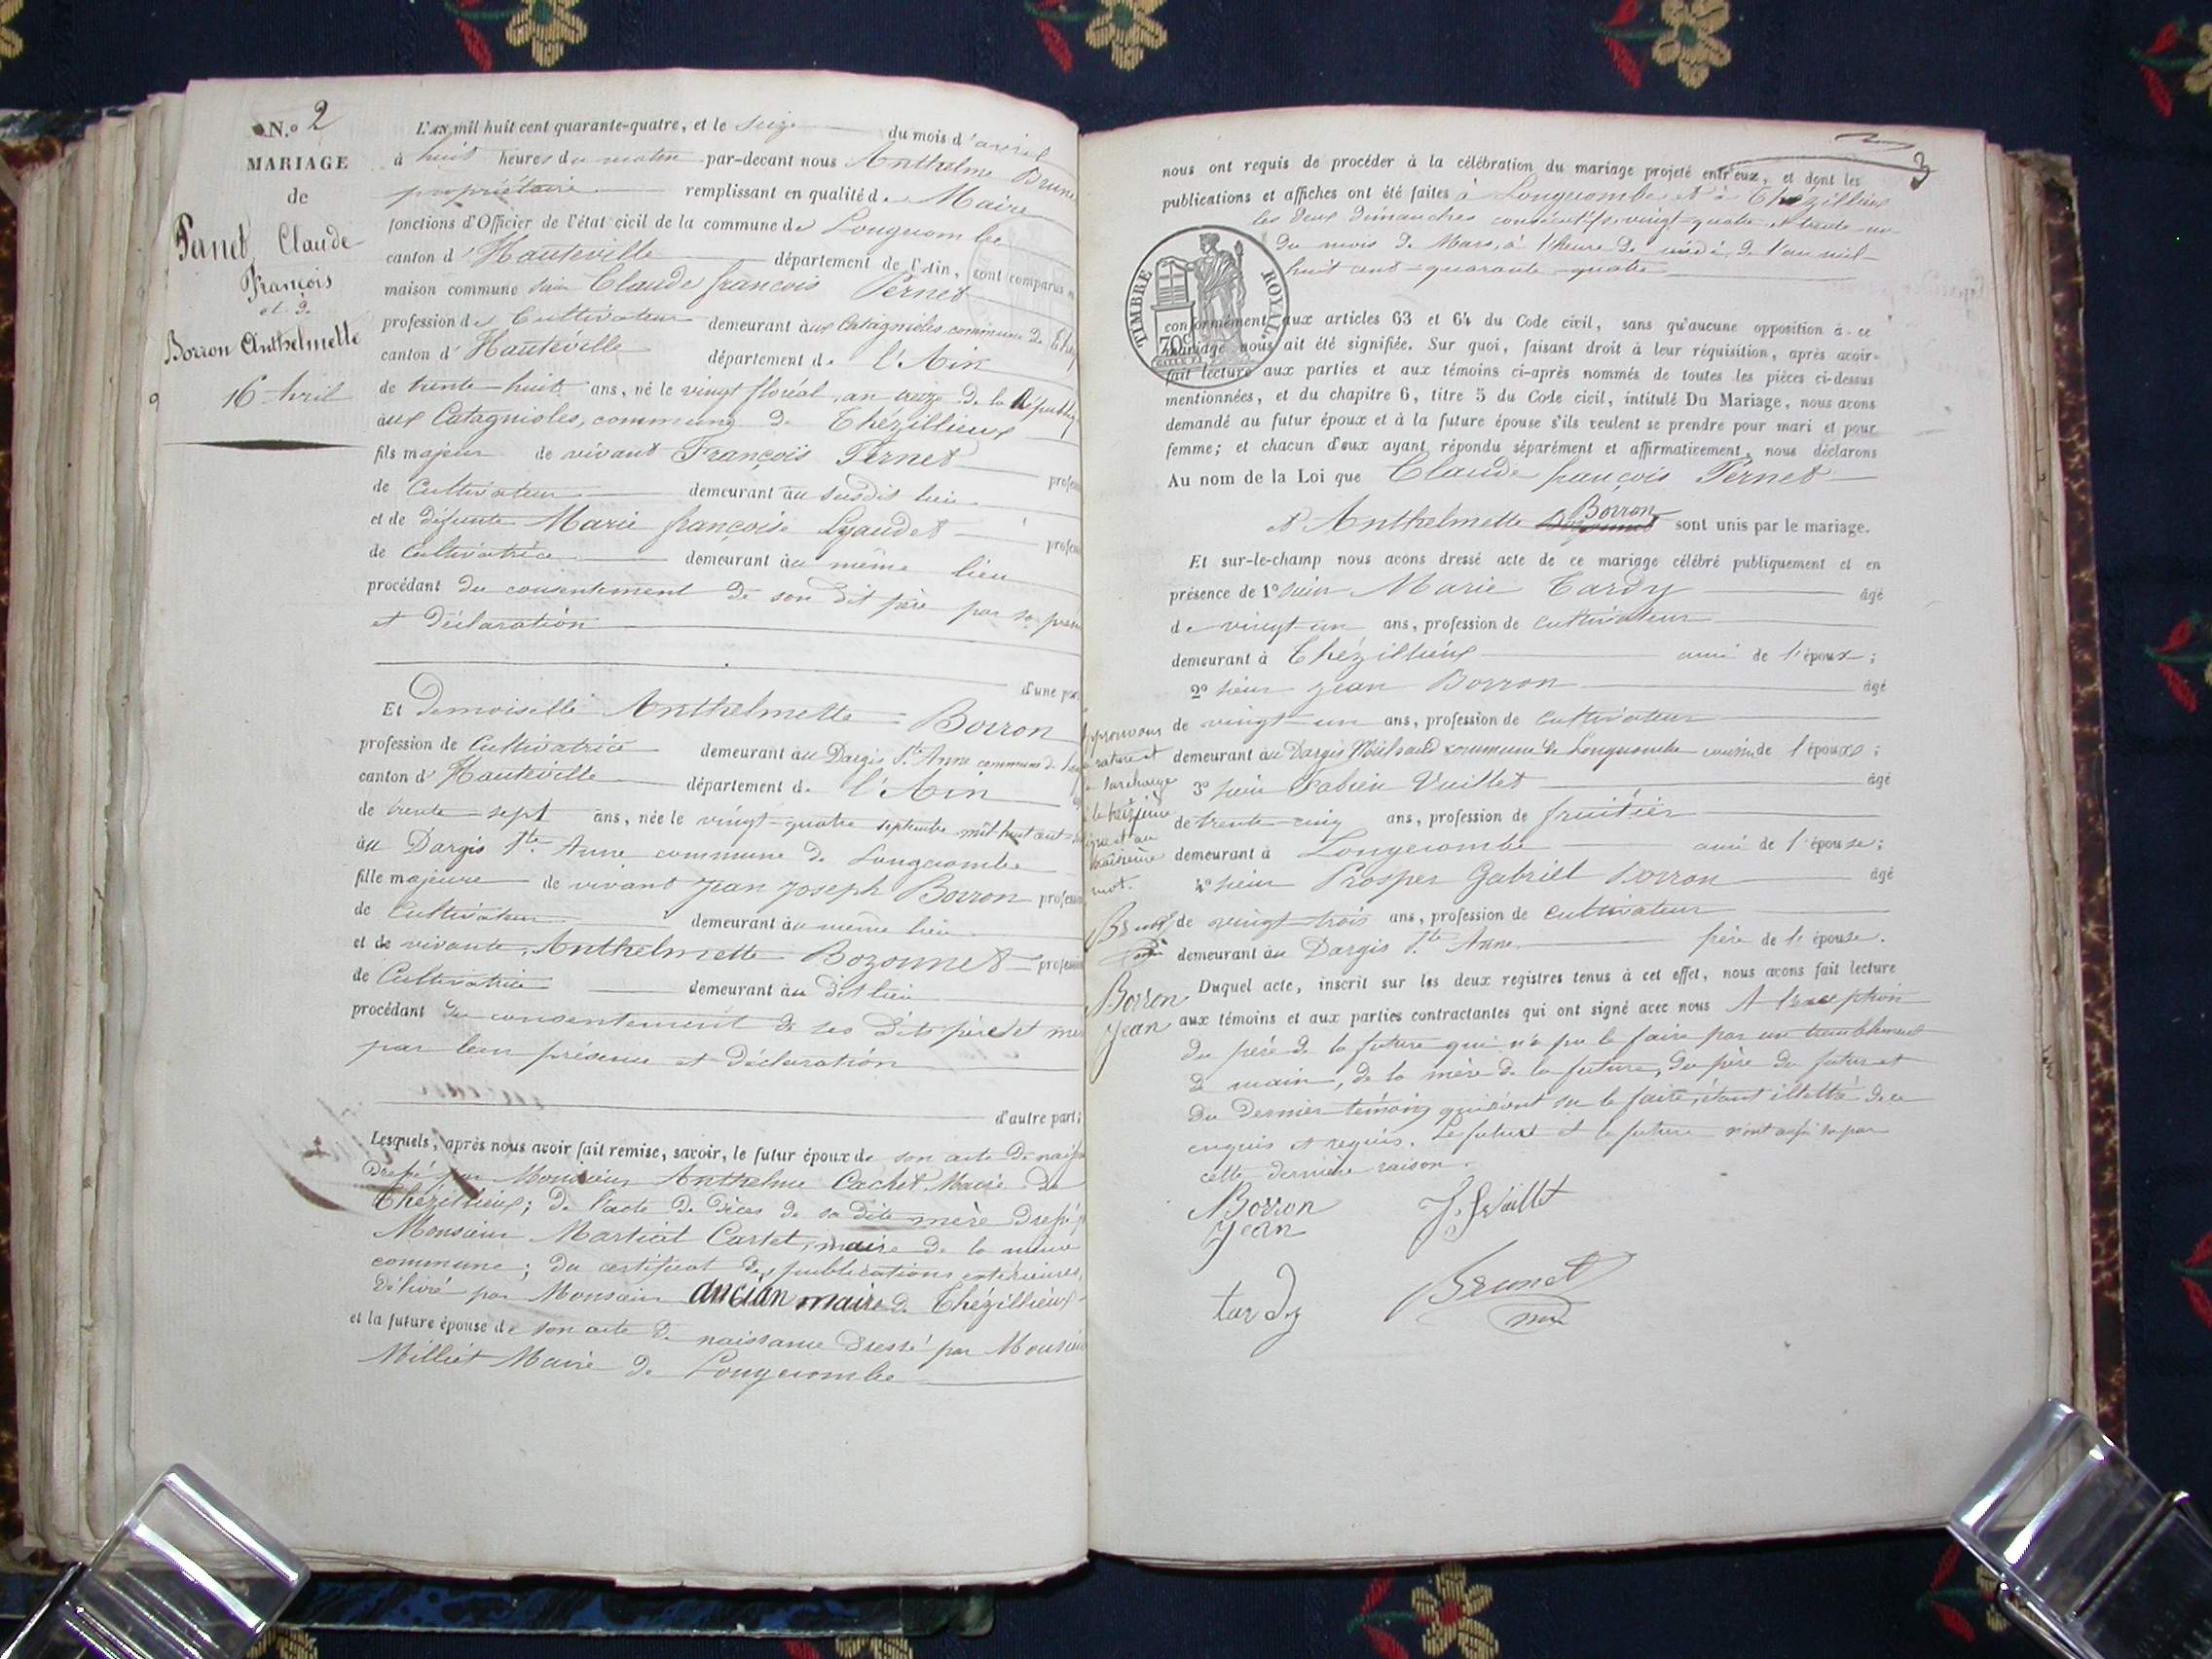 N.o 2
MARIAGE
de
Pernet Claude
François
et de
Borron Anthelmette
16 Avril
L'AN mil huit cent quarante-quatre, et le seize du mois d'avril
à huit heures du matin par-devant nous Anthelme Brunet
propriétaire remplissant en qualité de Maire
fonctions d'Officier de l'état civil de la commune de Longecombe
canton d'Hauteville département de l'Ain, sont comparus en
maison commune sieur Claude françois Pernet
profession de Cultivateur demeurant aux Catagnioles, commune de
canton d'Hauteville département de l'Ain
de trente-huit ans, né le vingt floréal, an treize de la République
aux Catagnioles, commune de Thézillieux
fils majeur de vivant François Pernet
de Cultivateur demeurant au susdit lieu
et de défunte Marie françoise Lyaudet
de Cultivatrice demeurant au même lieu
procédant du consentement de son dit père par sa
et déclaration
d'une part
Et demoiselle Anthelmette Borron
profession de Cultivatrice demeurant au Dargis Ste Anne commune de
canton d'Hauteville département de l'Ain
de trente-sept ans, née le vingt-quatre septembre mil huit cent
au Dargis Ste Anne commune de Longecombe
fille majeure de vivant Jean Joseph Borron
de Cultivateur demeurant au même lieu
et de vivante Anthelmette Bozonnet
de Cultivatrice demeurant au dit lieu
procédant du consentement de ses dits père et
par leur présence et déclaration
d'autre part;
Lesquels, après nous avoir fait remise, savoir, le futur époux de son acte de
dressé par Monsieur Anthelme Cachet Maire de
Thézillieux; de l'acte de décès de sa dite mère
Monsieur Martial Cartet, maire de la même
commune; du certificat des publications extérieures,
délivré par Monsieur ancian maire de Thézillieux
et la future épouse de son acte de naissance dressé par Monsieur
Milliet Maire de Longecombe
3
nous ont requis de procéder à la célébration du mariage projeté entr'eux, et dont les
publications et affiches ont été faites à Longecombe et à Thézillieux
les deux dimanches consécutifs, vingt-quatre et trente-un
du mois de Mars, à l'heure de midi, de l'an mil
huit cent-quarante-quatre
TIMBRE ROYAL.
70c
conformément aux articles 63 et 64 du Code civil, sans qu'aucune opposition à ce
mariage nous ait été signifiée. Sur quoi, faisant droit à leur réquisition, après avoir
fait lecture aux parties et aux témoins ci-après nommés de toutes les pièces ci-dessus
mentionnées, et du chapitre 6, titre 5 du Code civil, intitulé Du Mariage, nous avons
demandé au futur époux et à la future épouse s'ils veulent se prendre pour mari et pour
femme; et chacun d'eux ayant répondu séparément et affirmativement, nous déclarons
Au nom de la Loi que Claude françois Pernet
et Anthelmette Borron sont unis par le mariage.
Et sur-le-champ nous avons dressé acte de ce mariage célébré publiquement et en
présence de 1o sieur Marie Tardy âgé
de vingt-un ans, profession de Cultivateur
demeurant à Thézillieux ami de l'époux;
2o sieur Jean Borron âgé
de vingt-un ans, profession de Cultivateur
demeurant au Dargis commune de Longecombe cousin de l'épouse;
3o sieur Fabien Vuillet âgé
de trente-cinq ans, profession de fruitier
demeurant à Longecombe ami de l'épouse;
4o sieur Prosper Gabriel Borron âgé
de vingt-trois ans, profession de cultivateur
demeurant au Dargis Ste Anne frère de l'épouse.
surcharge
mot.
Borron
Jean
Duquel acte, inscrit sur les deux registres tenus à cet effet, nous avons fait lecture
aux témoins et aux parties contractantes qui ont signé avec nous A l'exception
du père de la future qui n'a pu le faire par un tremblement
de main, de la mère de la future, du père du futur et
du dernier témoin qui n'ont su le faire, étant illettré de ce
enquis et requis. Le futur et la future n'ont aussi su par
cette dernière raison.
Borron
Jean
J. f Vuillet
tardy
Brunet